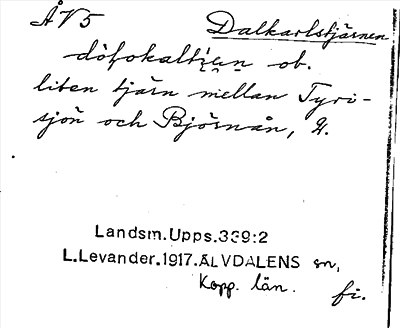 ÅV5 Dalkarlstjärnen
ob.
liten tjärn mellan Tyri-
sjön och Björnån,
Landsm.Upps.339:2
L.Levander.1917.ÄLVDALENS sn,
Kopp. län.
fi.